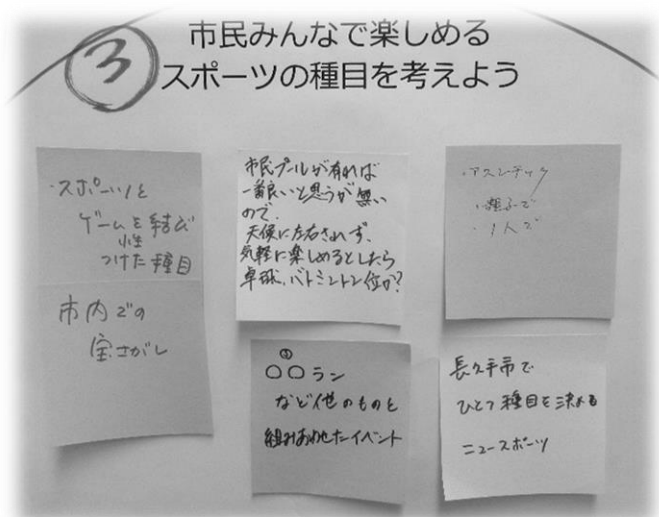 ③
市民みんなで楽しめる
スポーツの種目を考えよう
・スポーツと
ゲーム性を結び
つけた種目
市内での
宝さがし
市民プールが有れば
一番良いと思うが無い
ので、
天候に左右されず、
気軽に楽しめるとしたら
卓球、バトミントン位か?
・アスレチック
・親子で
・1人で
〇〇ラン
など他のものと
組みあわせたイベント
長久手市で
ひとつ種目を決める
ニュースポーツ